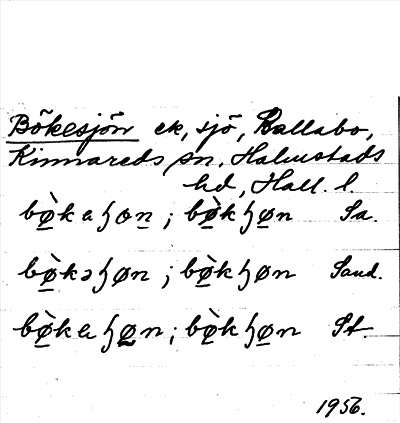 Bökesjön ek, sjö, Kallabo,
Kinnareds sn, Halmstads
hd, Hall. l.
bø̀keɧøn ; bø̀kɧøn Sa.
bø̀kəɧøn ; bø̀kɧøn Sand.
bø̀keɧøn ; bø̀kɧøn St.
1956.